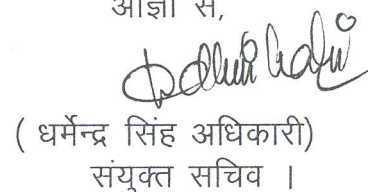 आज्ञा से,
( धर्मेन्द्र सिंह अधिकारी)
संयुक्त सचिव ।